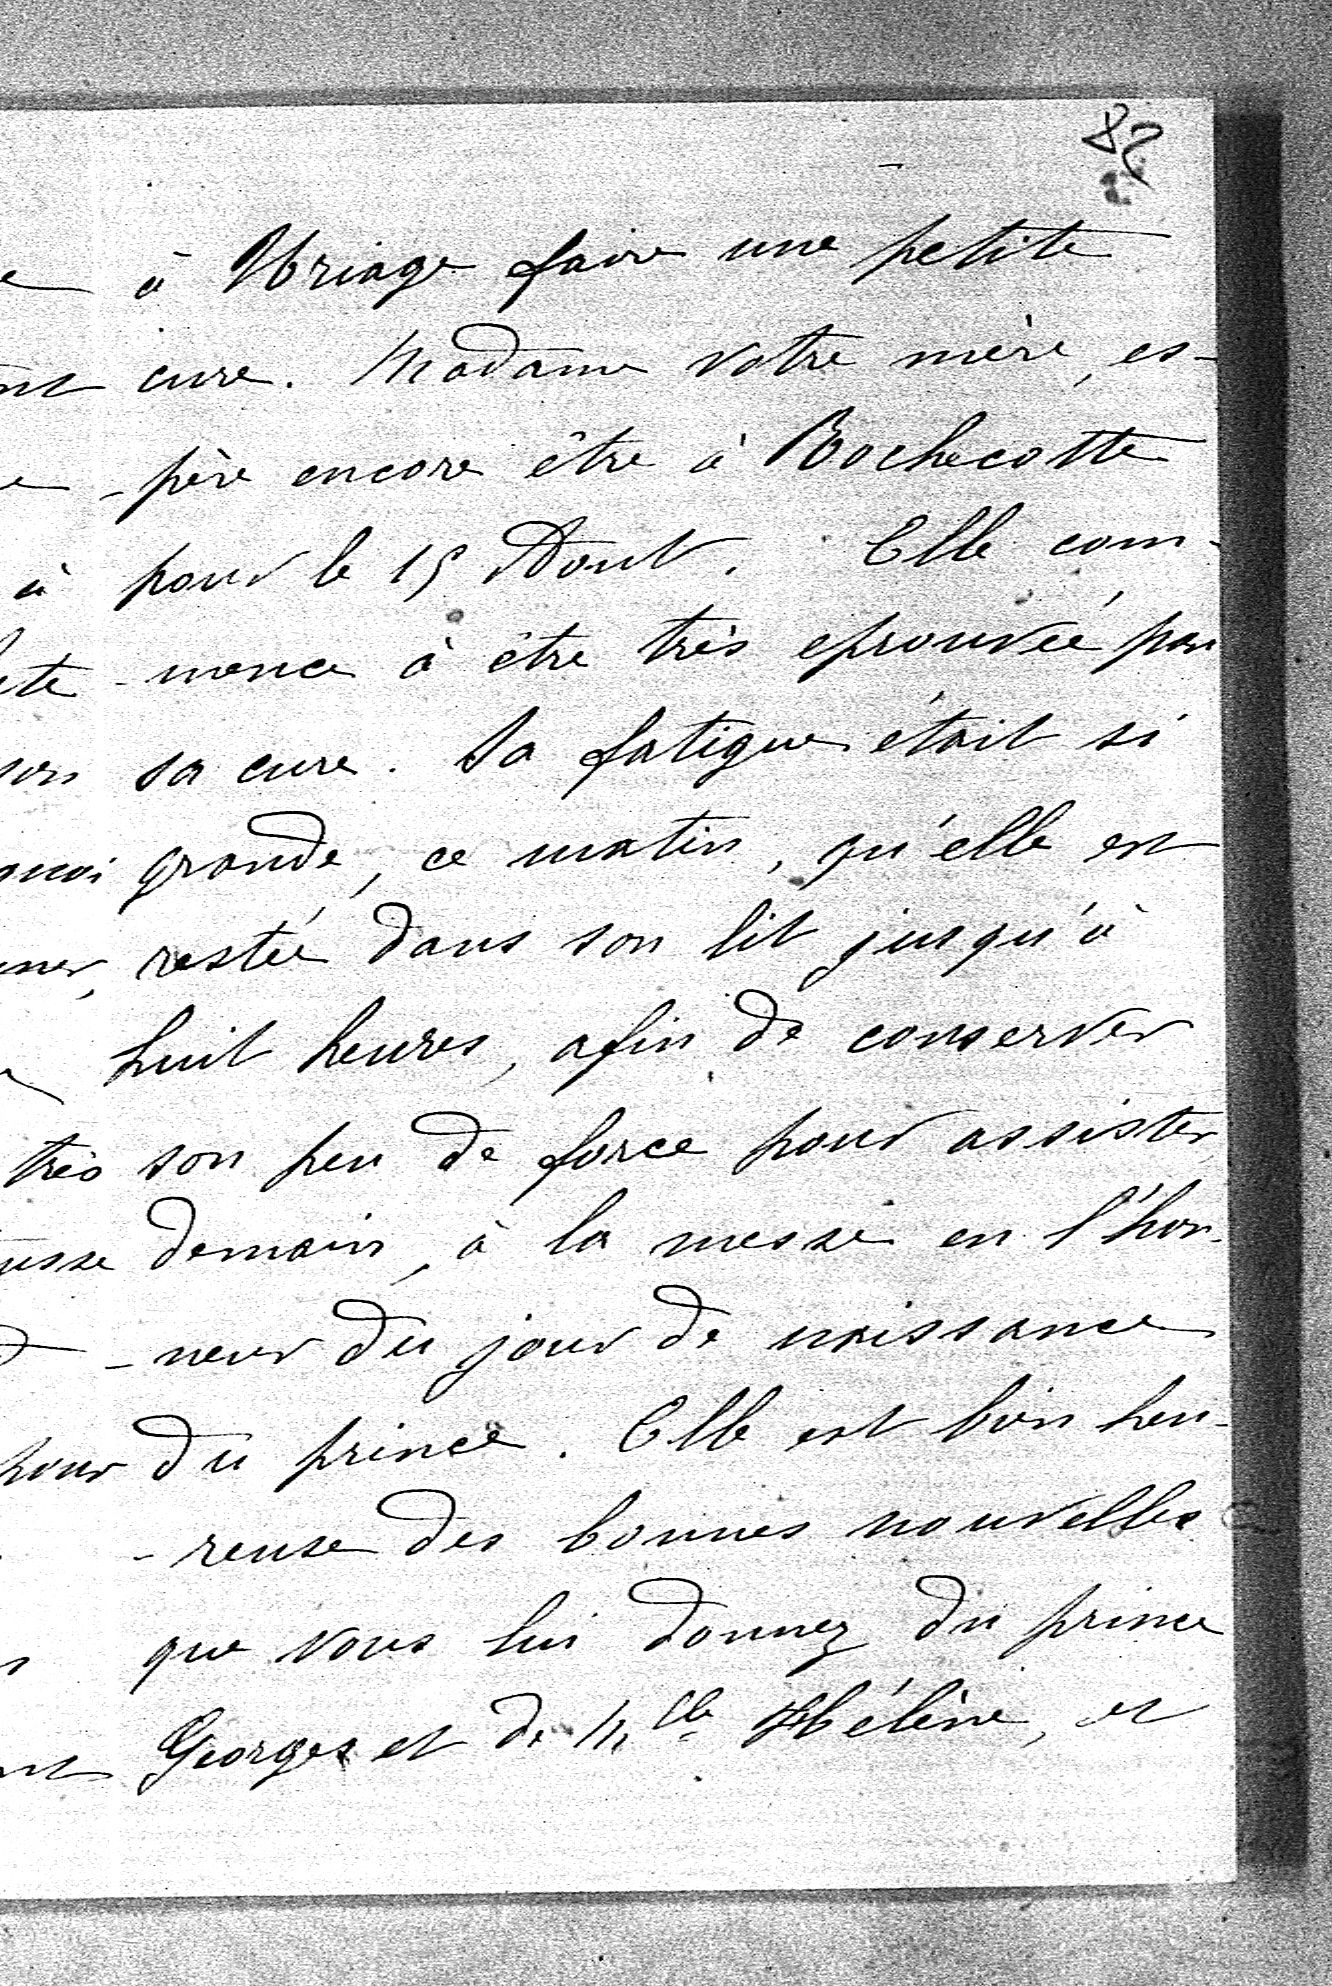 82
à Uriage faire une petite
cure. Madame votre mère, es-
-père encore être à Rochecotte
pour le 15 Aout. Elle com-
-mence à être très eprouvée par
sa cure. Sa fatigue était si
grande, ce matin, qu'elle est
restée dans son lit jusqu'à
huit heures, afin de conserver
son peu de force pour assister,
demain, à la messe en l'hon-
-neur du jour de naissance
du prince. Elle est bien heu-
-reuse des bonnes nouvelles
que vous lui donnez du prince
Georges et de Mlle Hélène, et